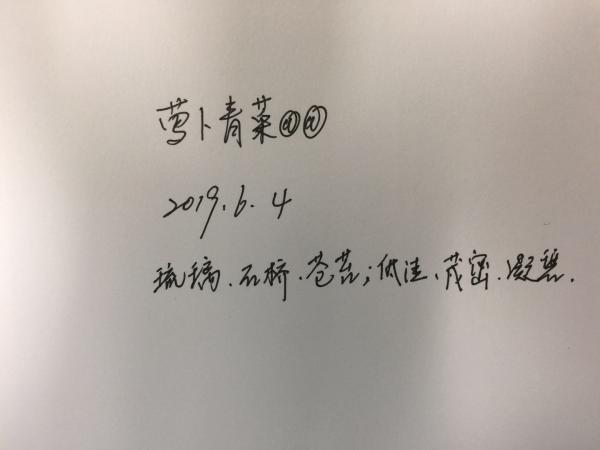 萝卜青菜@@
2019.6.4
琉璃、石桥、苍苔；低洼、茂密、凝碧.